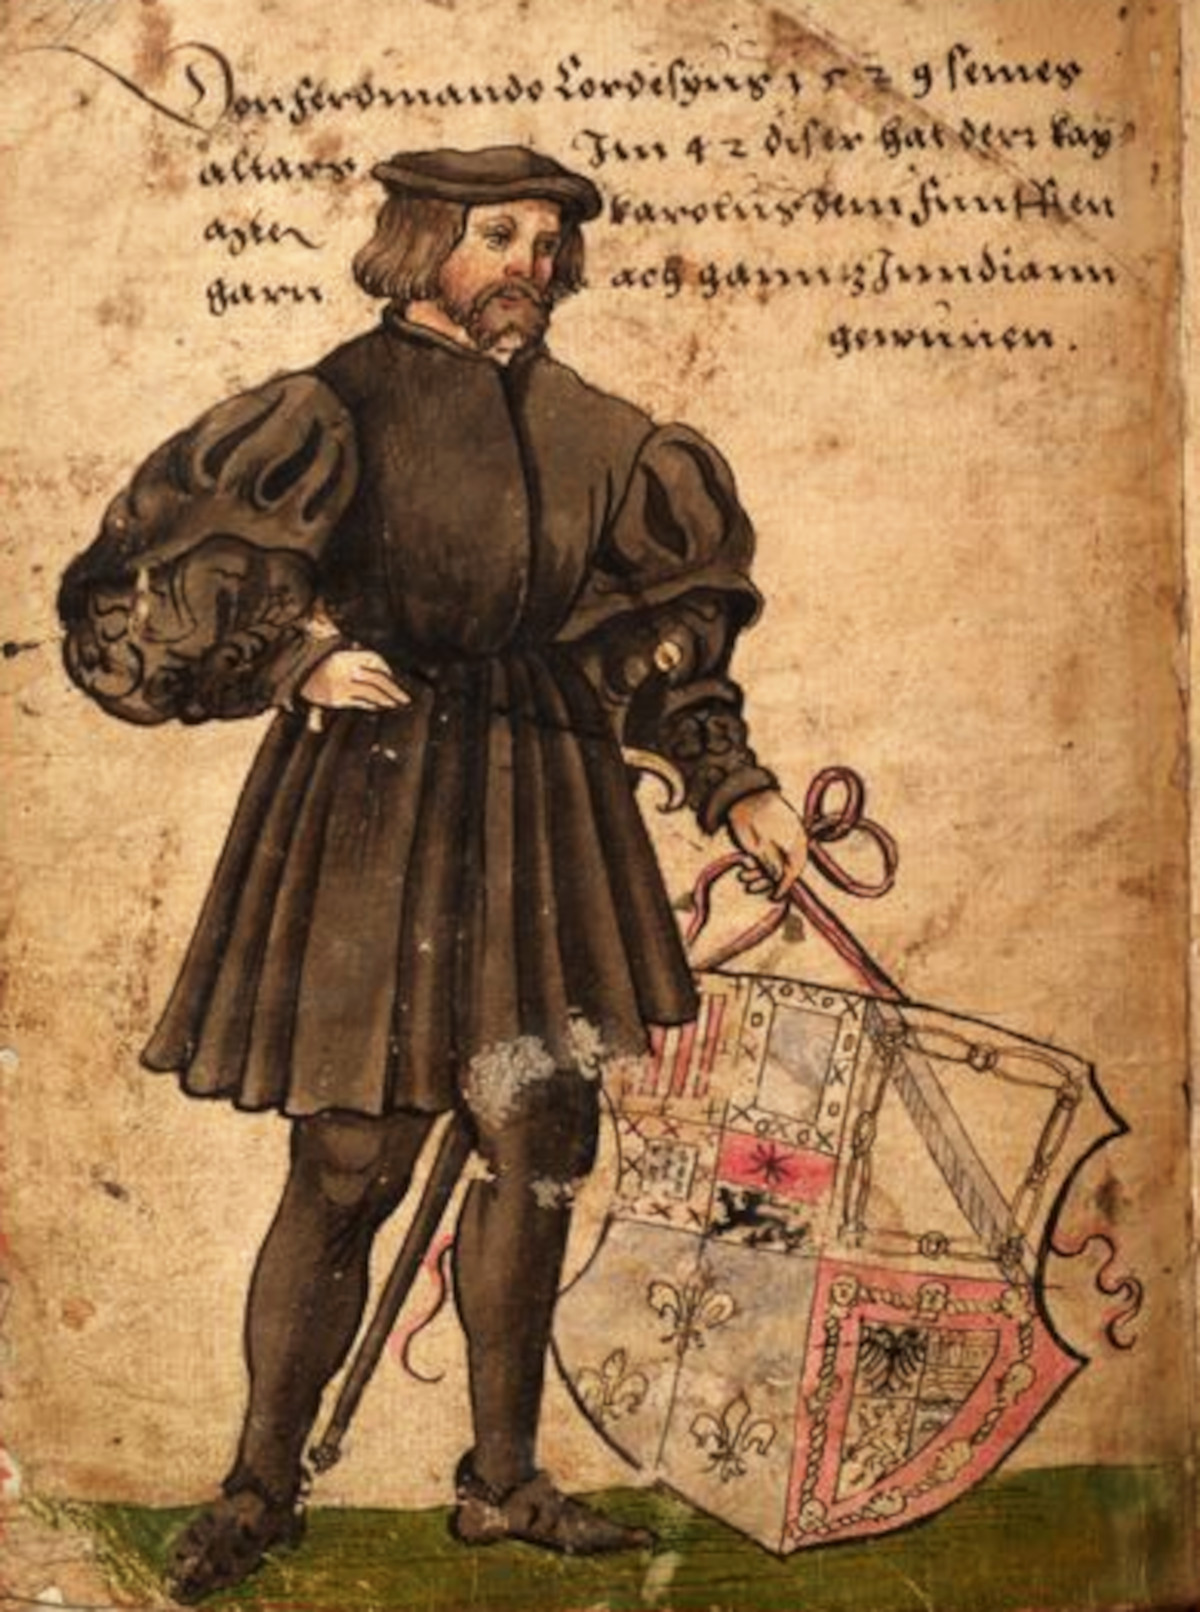 Don ferdinando Cordesyus 1529 seines
alttars Im 42 diser hat dem kay
karolus dem funfften
garn ach gannz Inndiann
gewunen.